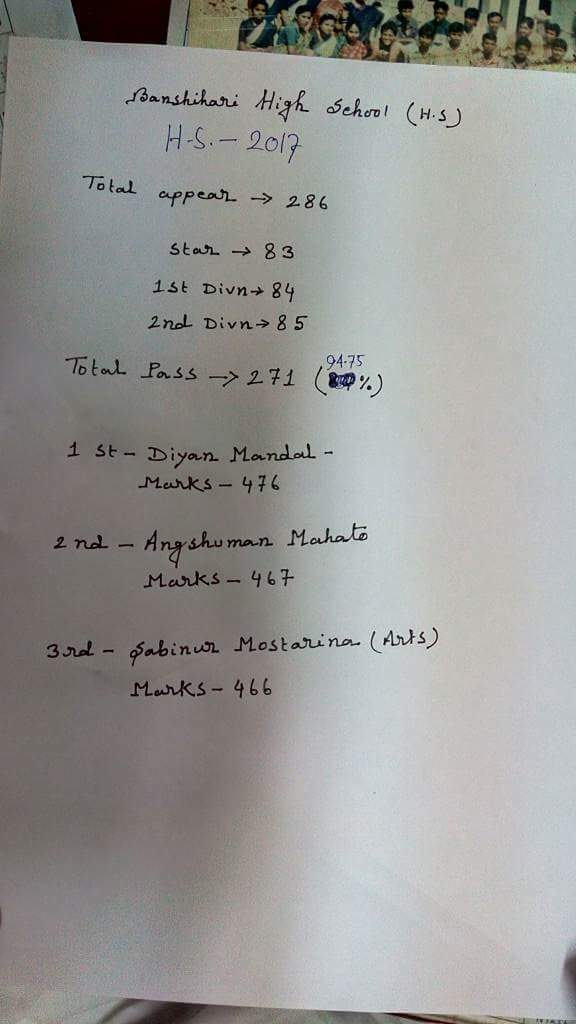 Banshihari High School (H.S)
H.S. - 2017
Total appear → 286
Star → 83
1st Divn → 84
2nd Divn → 85
Total Pass → 271 (94.75 %)
1 st - Diyan Mandal -
Marks - 476
2 nd - Angshuman Mahato
Marks - 467
3rd - Sabinur Mostarina (Arts)
Marks - 466